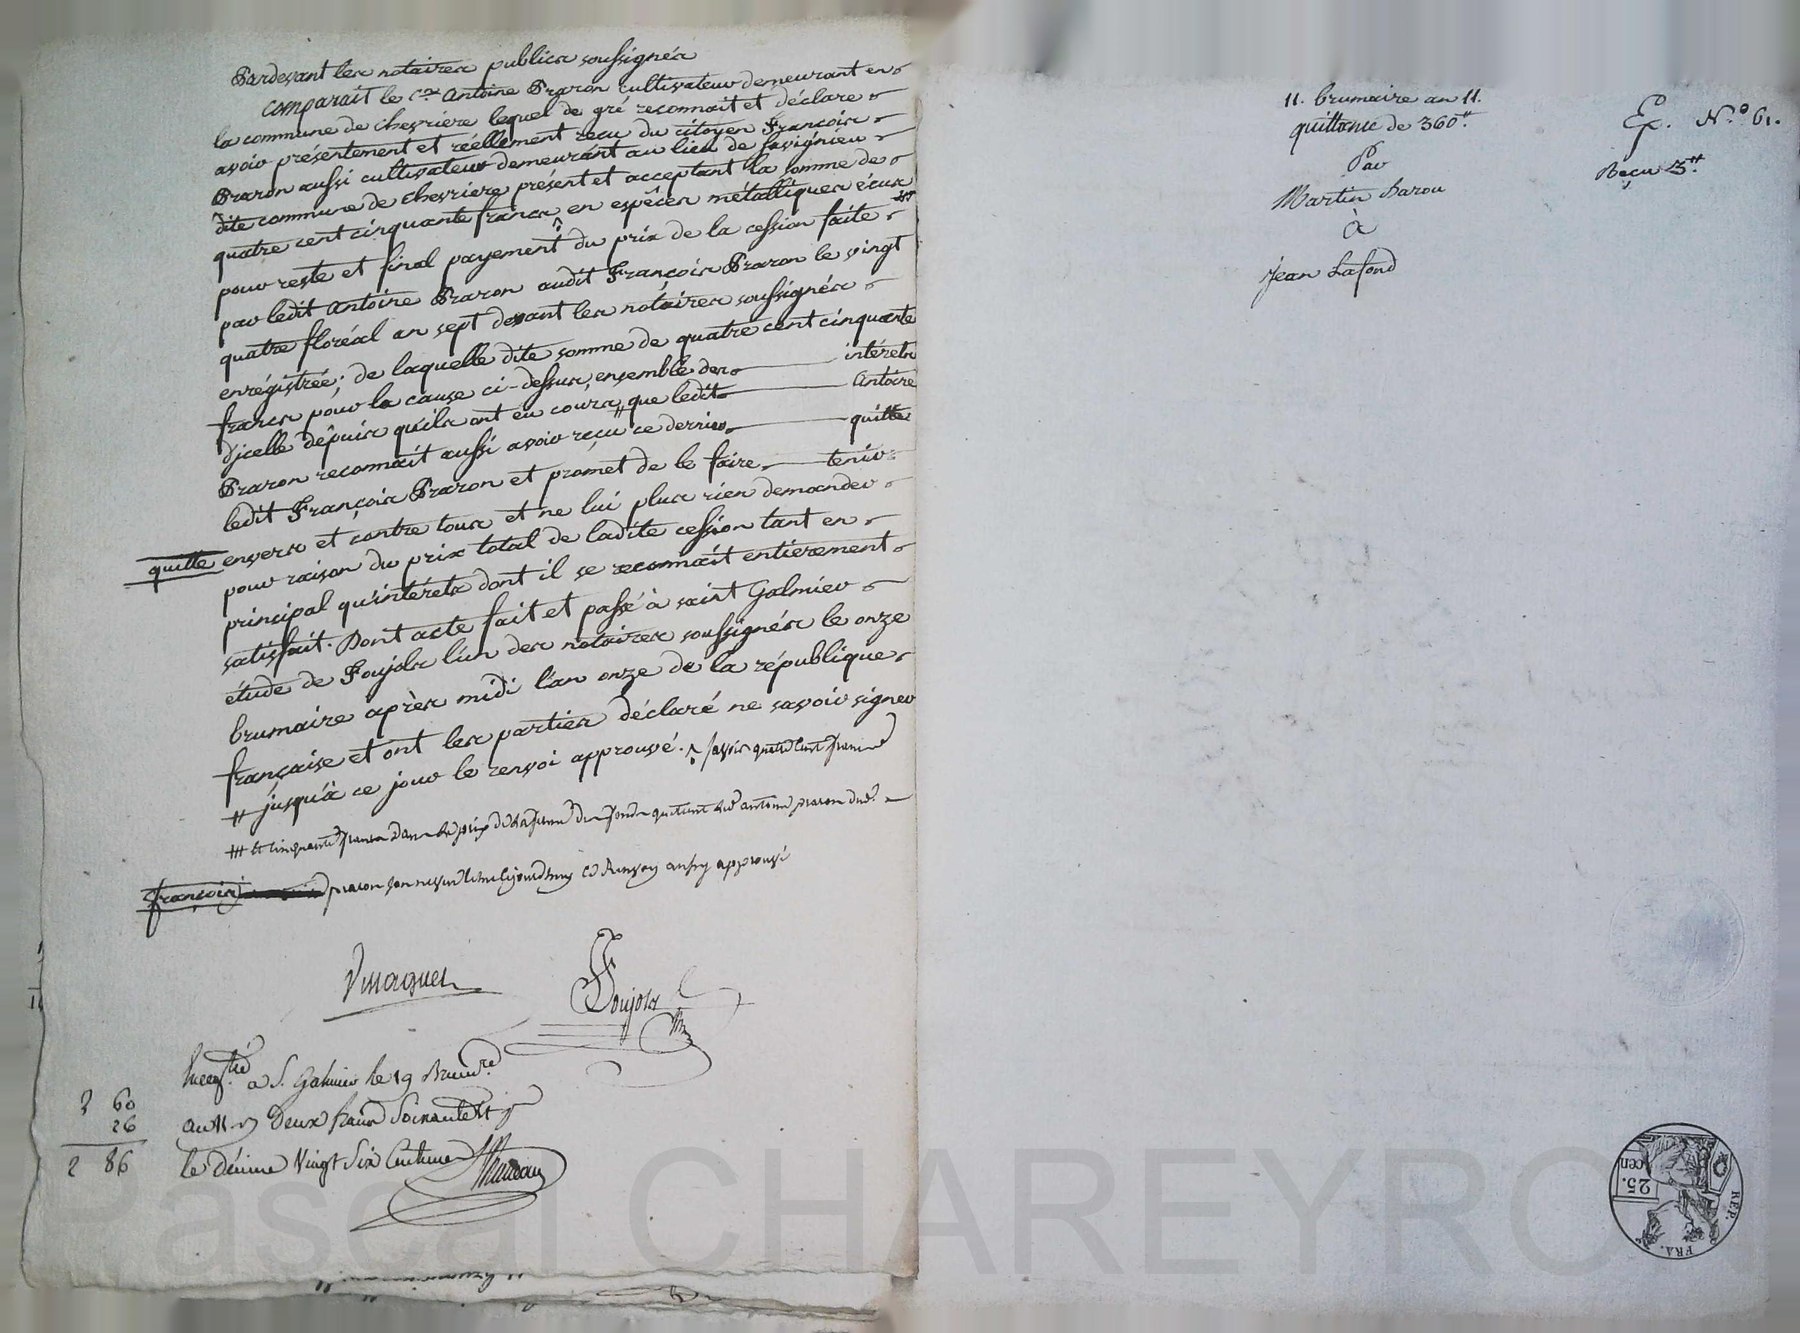 Pardevant les notaires publics soussignés
comparait le c.en Antoine Praron cultivateur demeurant en
la commune de chevriere lequel de gré reconnait et déclare
avoir présentement et réellement reçu du citoyen François
Praron aussi cultivateur demeurant au lieu de
dite commune de chevriere présent et acceptant la somme de
quatre cent cinquante francs en espêces métalliques écus
pour reste et final payement du prix de la cession faite
par ledit Antoine Praron audit François Praron le vingt
quatre floréal an sept devant les notaires soussignés
enrégistrée; de laquelle dite somme de quatre cent cinquante
francs pour la cause ci-dessus, ensemble des intérets
d'icelle dépuis qu'ils ont eu cours, # que ledit Antoine
Praron reconnait aussi avoir reçu ce dernier quitte
ledit François Praron et promet de le faire tenir
quitte envers et contre tous et ne lui plus rien demander
pour raison du prix total de ladite cession tant en
principal qu'intérêts dont il se reconnait entièrement
satisfait. Dont acte fait et passé à saint Galmier
étude de Foujols l'un des notaires soussignés le onze
brumaire après midi l'an onze de la république
française et ont les parties déclaré ne savoir signer
# jusqu'à ce jour le renvoi approuvé. savoir quatre cent francs
et cinquante francs dans le prix de la ferme des fonds antoine praron
françois praron son ce Renvoy aussy approuvé
Foujols
Enreg.tré a S. Galmier le 19 Brum.re
an 11 deux francs soixante
le décime vingt six centimes
2 60
26
2 86
11. brumaire an 11.
quittance de 360.tt
Par
Martin
à
Jean Lafond
Ex. N.o 61.
Reçu 3.tt
REP. FRA.
25. cen
Pascal CHAREYRON